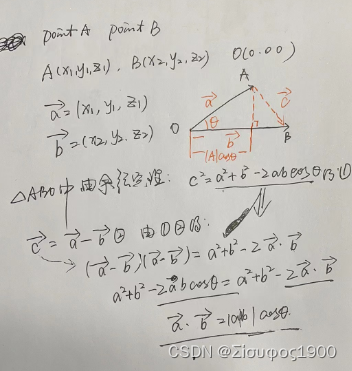 point A point B
A(x₁,y₁,z₁), B(x₂,y₂,z₂) O(0.0.0)
a⃗=(x₁,y₁,z₁)
b⃗=(x₂,y₂,z₂)
A
a⃗
c⃗
θ
O
b⃗
B
|A|cosθ
△ABO中由余弦定理: c²=a²+b²-2abcosθ ①
c⃗=a⃗-b⃗ ② 由①②得:
(a⃗-b⃗)(a⃗-b⃗)=a²+b²-2a⃗·b⃗
a²+b²-2abcosθ=a²+b²-2a⃗·b⃗
a⃗·b⃗=|a||b|cosθ.
CSDN @Ζίσυφος1900